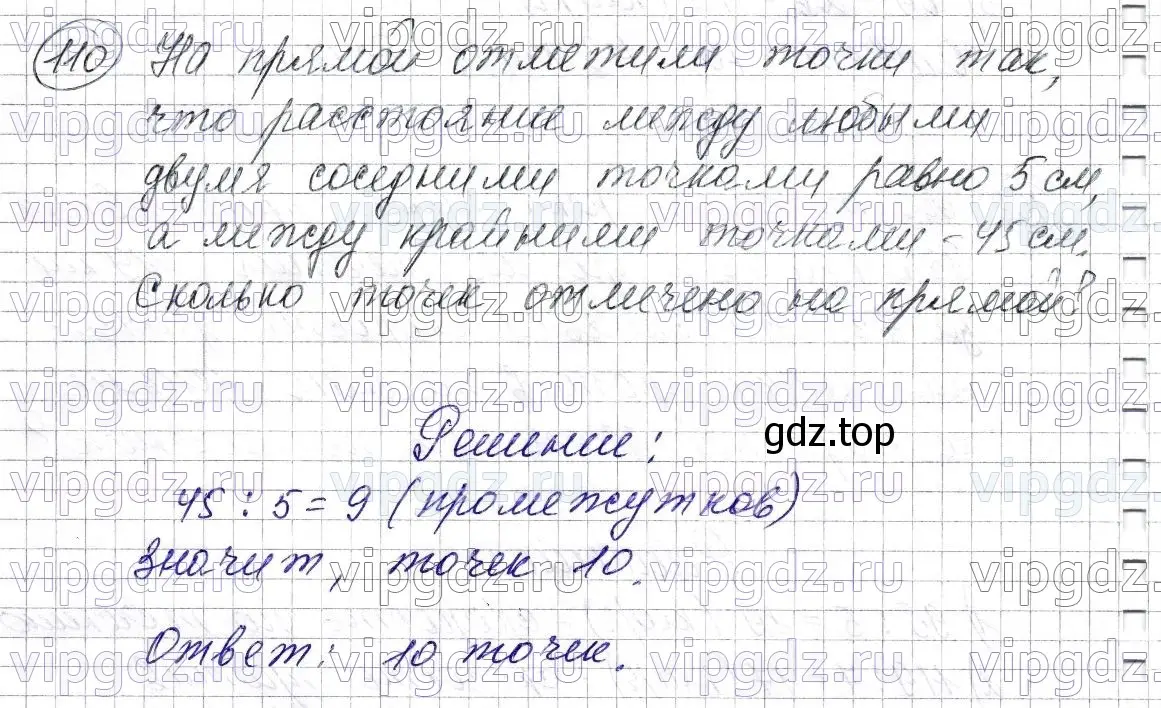 110 На прямой отметили точки так,
что расстояние между любыми
двумя соседними точками равно 5 см,
а между крайними точками - 45 см.
Сколько точек отмечено на прямой?
Решение:
gdz.top
45 : 5 = 9 (промежутков)
Значит, точек 10.
Ответ: 10 точек.
vipgdz.ru